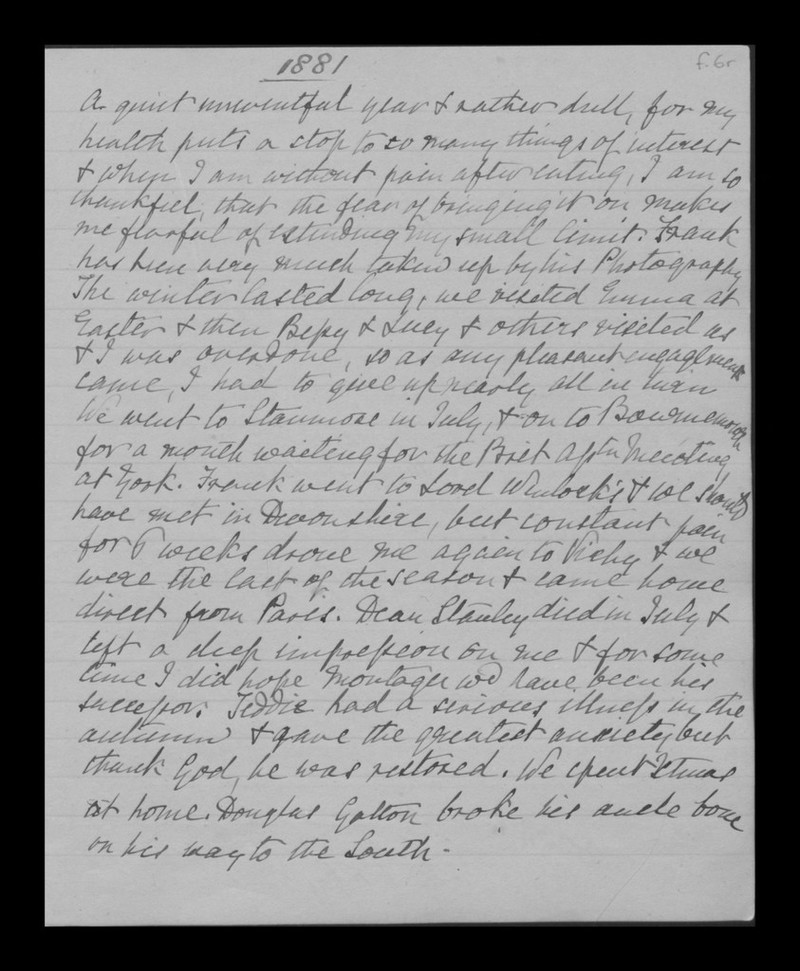 1881
f. 6r
A quiet uneventful year & rather dull, for my
health puts a stop to so many things of interest
& when I am without pain after eating, I am so
thankful, that the fear of bringing it on makes
me fearful of extending my small limit. Frank
has been very much taken up by his Photography
The winter lasted long, we visited Emma at
Easter & then Bessy & Lucy & others visited us
& I was overdone, so as any pleasant engagements
came, I had to give up nearly all in turn
We went to Stanmore in July, & on to Bournemouth
for a month waiting for the Brit Assn Meeting
at York. Frank went to Lord Wenlock's & we should
have met in Devonshire, but constant pain
for 6 weeks drove me again to Vichy & we
were the last of the season & came home
direct from Paris. Dean Stanley died in July &
left a deep impression on me & for some
time I did hope Montagu wd have been his
successor. Teddie had a serious illness in the
autumn & gave the greatest anxiety but
thank God, he was restored. We spent Xmas
at home. Douglas Galton broke his ancle bone
on his way to the South.